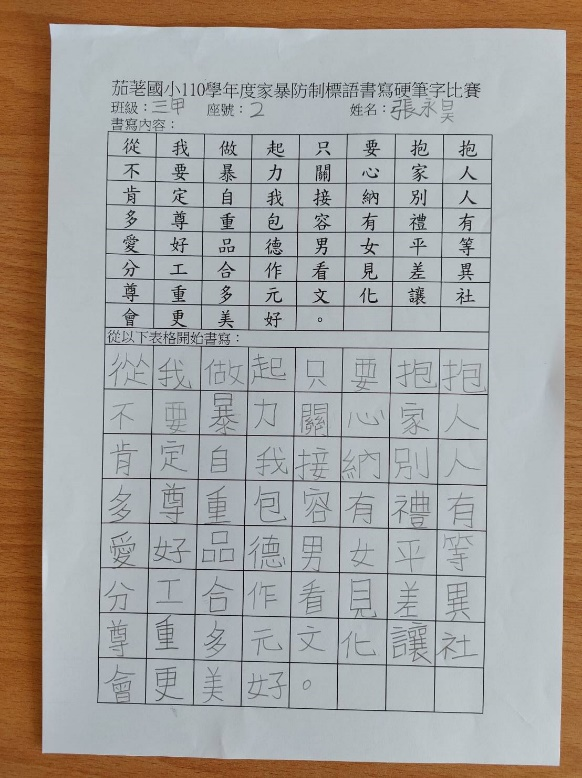 茄荖國小110學年度家暴防制標語書寫硬筆字比賽
班級：三甲 座號：2 姓名：張永昊
書寫內容：
從我做起只要抱抱
不要暴力關心家人
肯定自我接納別人
多尊重包容有禮有
愛好品德男女平等
分工合作看見差異
尊重多元文化讓社
會更美好。
從以下表格開始書寫：
從我做起只要抱抱
不要暴力關心家人
肯定自我接納別人
多尊重包容有禮有
愛好品德男女平等
分工合作看見差異
尊重多元文化讓社
會更美好。